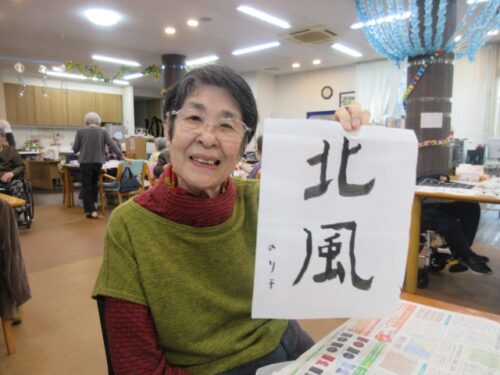 北風
のり子